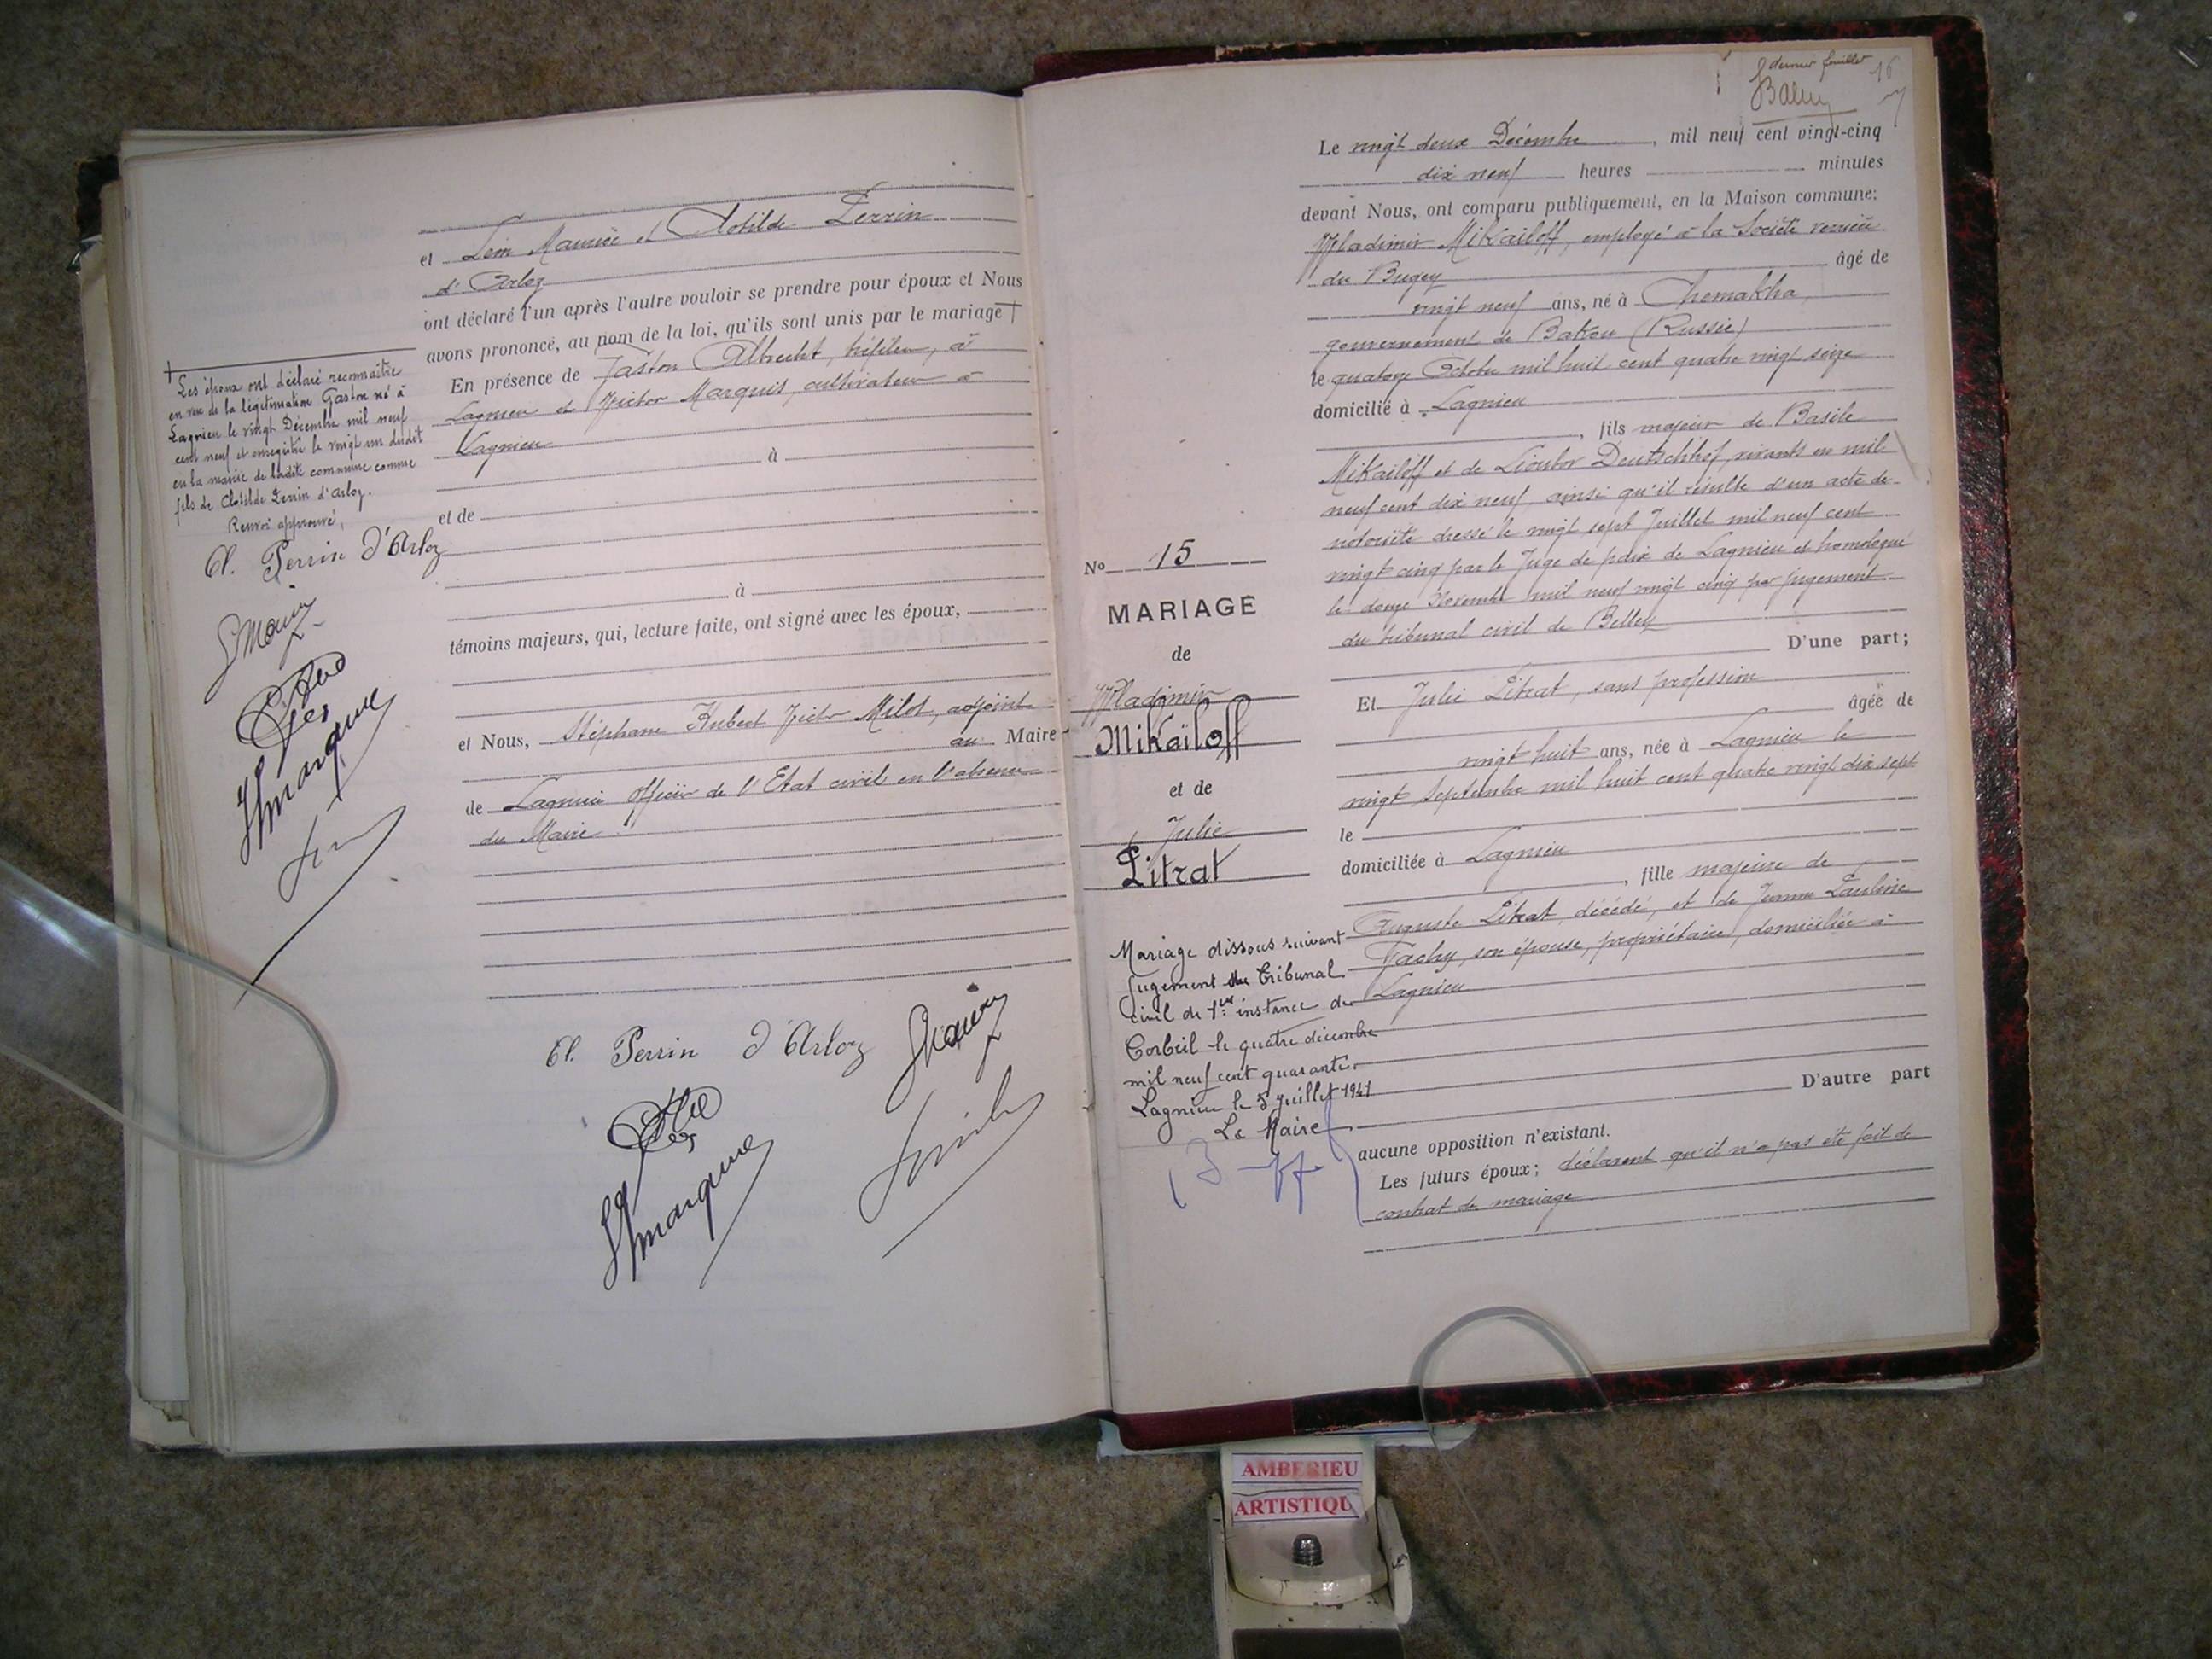 et Léon Maurice et Clotilde Perrin
d'Arloz
ont déclaré l'un après l'autre vouloir se prendre pour époux et Nous
avons prononcé, au nom de la loi, qu'ils sont unis par le mariage
En présence de Gaston Albrecht, tréfileur, à
Lagnieu et Victor Marquis, cultivateur à
Lagnieu
à
et de
à
témoins majeurs, qui, lecture faite, ont signé avec les époux,
et Nous, Stéphane Hubert Victor Milot, adjoint
au Maire
de Lagnieu officier de l'Etat civil en l'absence
du Maire
Les époux ont déclaré reconnaître
en vue de la légitimation Gaston né à
Lagnieu le vingt Décembre mil neuf
cent neuf et enregistré le vingt un dudit
en la mairie de ladite commune comme
fils de Clotilde Perrin d'Arloz.
Renvoi approuvé,
Cl. Perrin d'Arloz
Marquis
Cl. Perrin d'Arloz
Marquis
dernier feuillet
16
Le vingt deux Décembre, mil neuf cent vingt-cinq
dix neuf heures minutes
devant Nous, ont comparu publiquement, en la Maison commune:
Wladimir Mikaïloff, employé à la Société
du Bugey âgé de
vingt neuf ans, né à Chemakha
gouvernement de Bakou (Russie)
le quatorze Octobre mil huit cent quatre vingt seize
domicilié à Lagnieu
, fils majeur de Basile
Mikaïloff et de Deutschhof, vivants en mil
neuf cent dix neuf, ainsi qu'il résulte d'un acte de
notoriété dressé le vingt sept Juillet mil neuf cent
vingt cinq par le Juge de paix de Lagnieu et homologué
le douze Novembre mil neuf vingt cinq par jugement
du tribunal civil de Belley
D'une part;
Et Julie Litrat, sans profession
âgée de
vingt huit ans, née à Lagnieu le
vingt Septembre mil huit cent quatre vingt dix sept
le
domiciliée à Lagnieu
, fille majeure de
Auguste Litrat, décédé, et de Jeanne Pauline
Tachy, son épouse, propriétaire, domiciliée à
Lagnieu
D'autre part
aucune opposition n'existant.
Les futurs époux; déclarent qu'il n'a pas été fait de
contrat de mariage
No 15
MARIAGE
de
Wladimir
Mikaïloff
et de
Julie
Litrat
Mariage dissous suivant
jugement du Tribunal
civil de 1ère instance de
Corbeil le quatre décembre
mil neuf cent quarante.
Lagnieu le 5 juillet 1941
Le Maire
AMBERIEU
ARTISTIQU